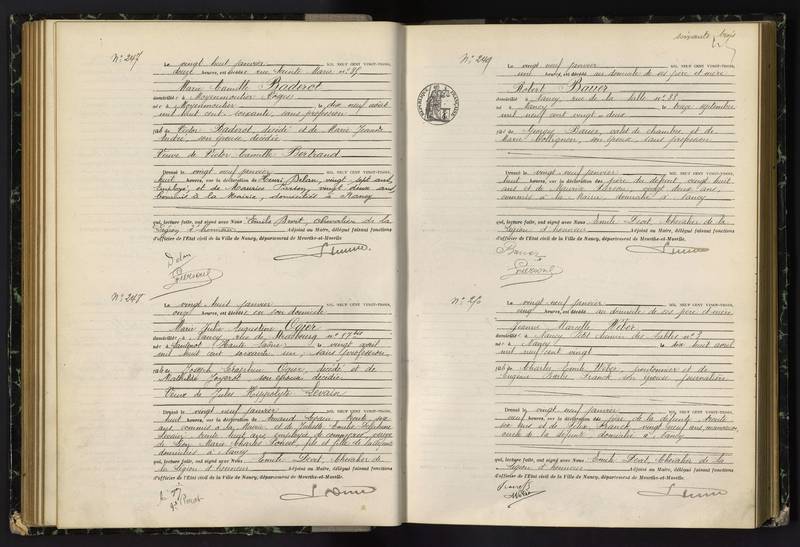 soixante trois
N° 247
Le vingt huit janvier MIL NEUF CENT VINGT-TROIS,
heures, est décédée rue Sainte Marie n° 
Marie Camille Baderot
domiciliée à Moyenmoutier Vosges
née à Moyenmoutier le dix neuf août
mil huit cent soixante, sans profession
fille de Victor Baderot, décédé et de Marie Jeanne
André, son épouse décédée
Veuve de Victor Camille Bertrand
Dressé le vingt neuf janvier MIL NEUF CENT VINGT-TROIS,
huit heures, sur la déclaration de Henri Delan, vingt sept ans,
employé, et de Maurice Pierson, vingt deux ans,
commis à la Mairie, domiciliés à Nancy
qui, lecture faite, ont signé avec Nous Emile Chevalier de la
Légion d'honneur Adjoint au Maire, délégué faisant fonctions
d'officier de l'Etat civil de la Ville de Nancy, département de Meurthe-et-Moselle.
Delan
Pierson
N° 248
Le vingt huit janvier MIL NEUF CENT VINGT-TROIS,
onze heures, est décédée en son domicile
Marie Julie Augustine Ogier
domiciliée à Nancy, rue de Strasbourg n°
née à Haute Saône le vingt avril
mil huit cent soixante un, sans profession,
fille de Joseph Ogier, décédé et de
Mathilde son épouse décédée
Veuve de Jules Hippolyte Levain
Dressé le vingt neuf janvier MIL NEUF CENT VINGT-TROIS,
huit heures, sur la déclaration de Armand trente six
ans, commis à la Mairie et de Juliette Emilie
trente huit ans, employée de commerce, veuve
de Marie Charles fils et fille de la défunte
domiciliés à Nancy
qui, lecture faite, ont signé avec Nous Emile Chevalier de
la Légion d'honneur Adjoint au Maire, délégué faisant fonctions
d'officier de l'Etat civil de la Ville de Nancy, département de Meurthe-et-Moselle.
N° 249
Le vingt neuf janvier MIL NEUF CENT VINGT-TROIS,
une heures, est décédé au domicile de ses père et mère
Robert Bauer
domicilié à Nancy, rue de la n° 88
né à Nancy le treize septembre
mil neuf cent vingt deux
fils de Georges Bauer, valet de chambre et de
Marie Collignon, son épouse, sans profession
Dressé le vingt neuf janvier MIL NEUF CENT VINGT-TROIS,
huit heures, sur la déclaration des père du défunt, vingt huit
ans et de Maurice Pierson, vingt deux ans,
commis à la Mairie, domiciliés à Nancy
qui, lecture faite, ont signé avec Nous Emile Chevalier de la
Légion d'honneur Adjoint au Maire, délégué faisant fonctions
d'officier de l'Etat civil de la Ville de Nancy, département de Meurthe-et-Moselle.
Bauer
Pierson
N° 250
Le vingt neuf janvier MIL NEUF CENT VINGT-TROIS,
heures, est décédée au domicile de ses père et mère
Jeanne Marcelle Wéber
domiciliée à Nancy Petit chemin des Sables n° 3
née à Nancy le dix huit avril
mil neuf cent vingt
fille de Charles Emile Wéber, et de
Eugénie Franck son épouse, journalière
Dressé le vingt neuf janvier MIL NEUF CENT VINGT-TROIS,
neuf heures, sur la déclaration des père de la défunte, trente
six ans et de Félix Franck, vingt neuf ans, manoeuvre,
oncle de la défunte domiciliés à Nancy
qui, lecture faite, ont signé avec Nous Emile Chevalier de la
Légion d'honneur Adjoint au Maire, délégué faisant fonctions
d'officier de l'Etat civil de la Ville de Nancy, département de Meurthe-et-Moselle.